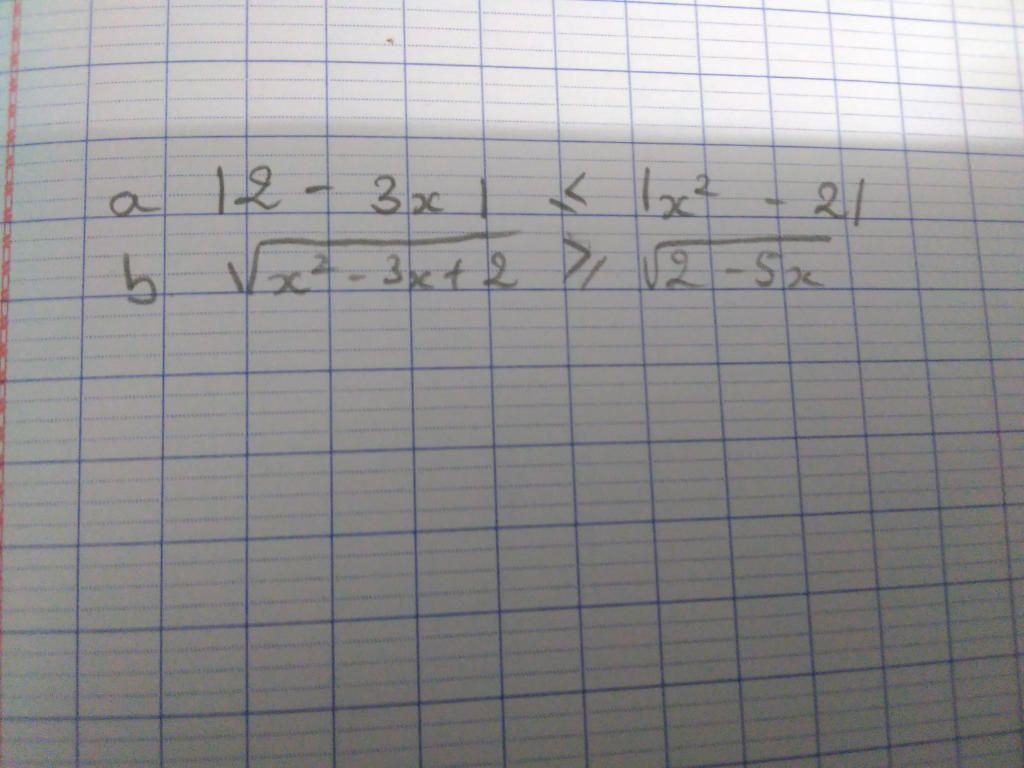 a |2 - 3x| < |x² - 2|
b √(x² - 3x + 2) ⩾ √(2 - 5x)